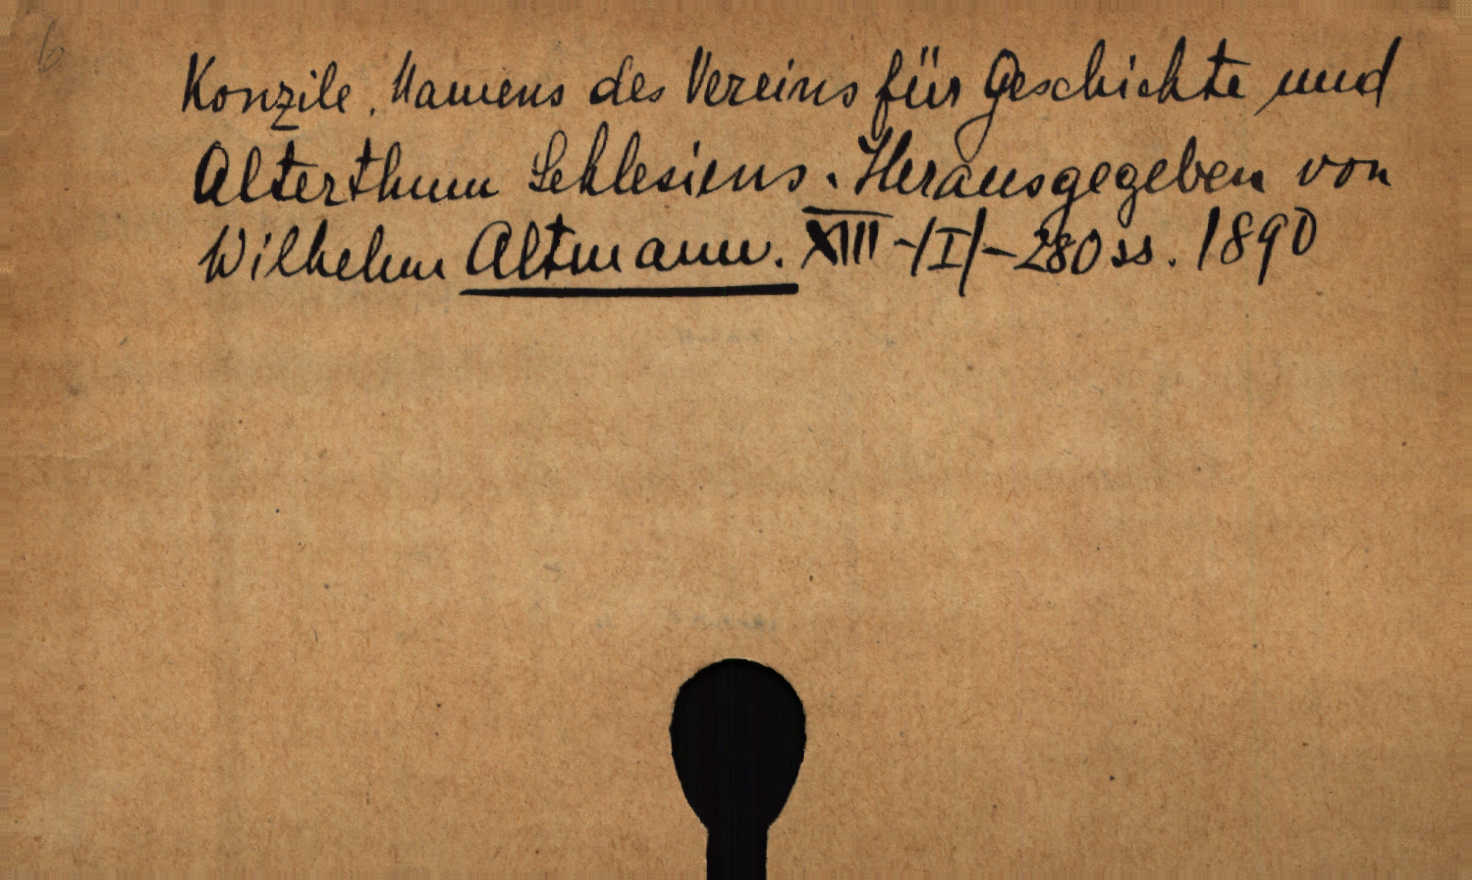 6
Konzile. Namens des Vereins für Geschichte und
Alterthum Schlesiens. Herausgegeben von
Wilhelm Altmann. XIII-/I/-280 ss. 1890